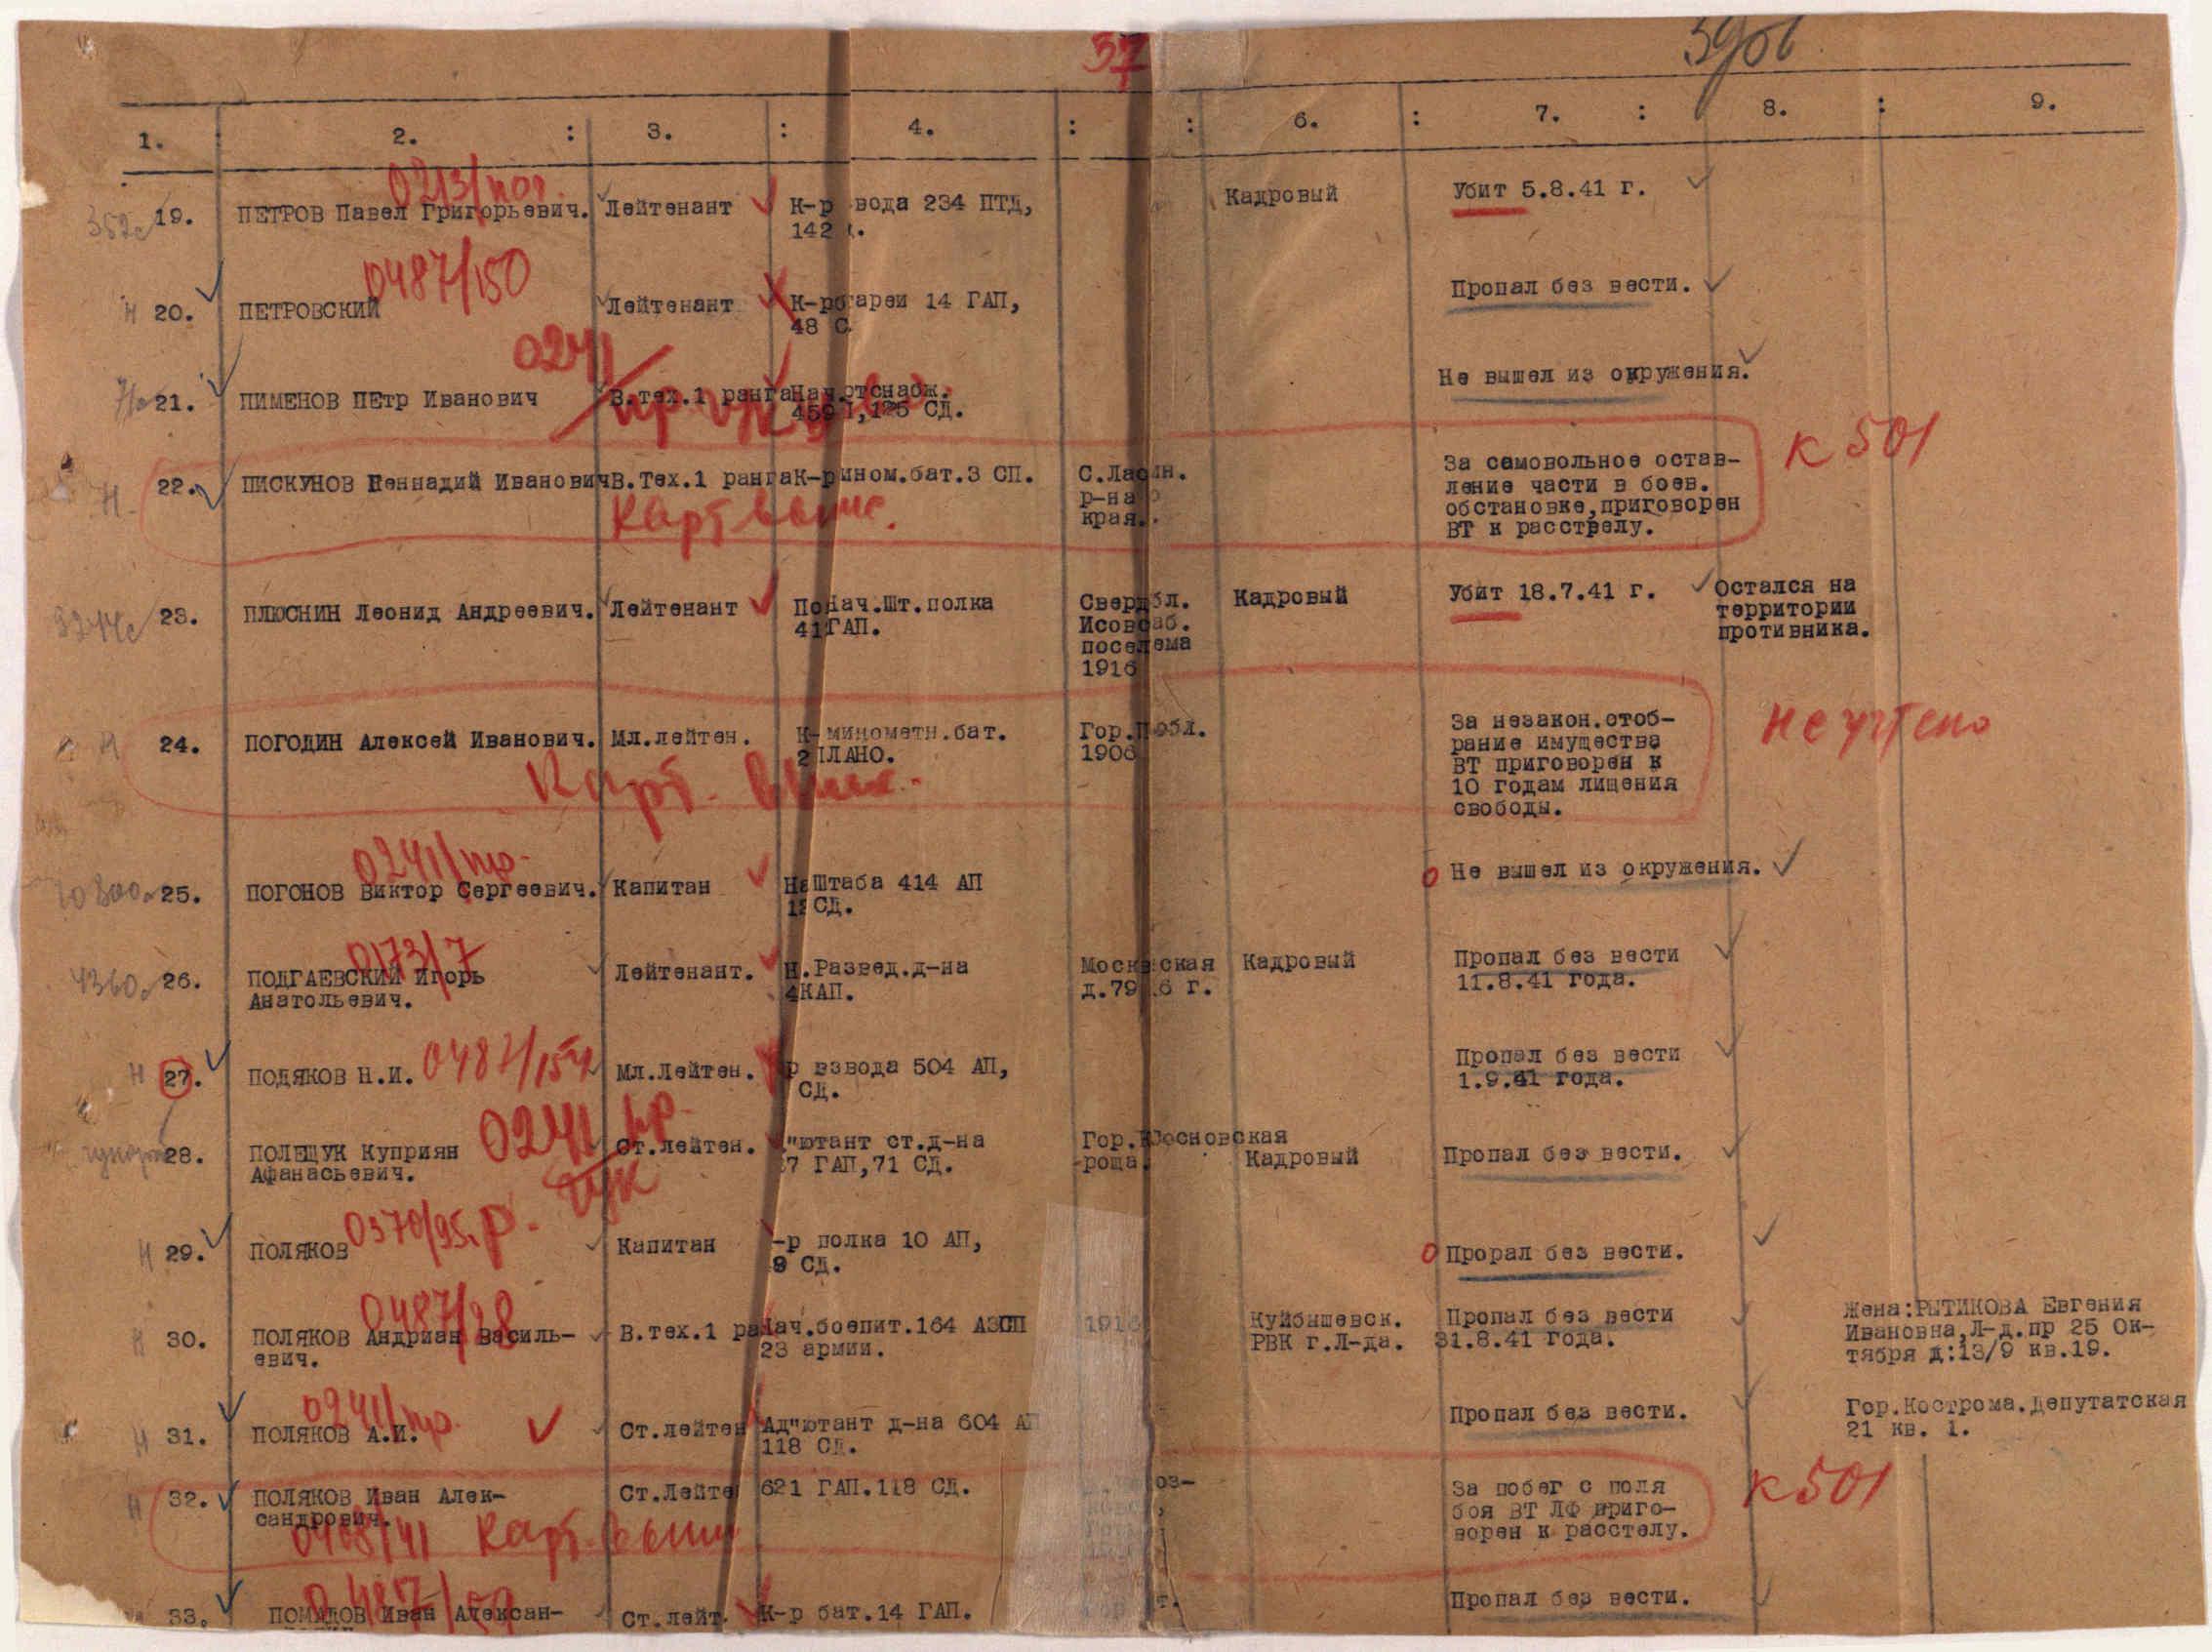 37
39об
1. : 2. : 3. : 4. : : 6. : 7. : 8. : 9.
0213/пог.
19. ПЕТРОВ Павел Григорьевич. Лейтенант К-р вода 234 ПТД, Кадровый Убит 5.8.41 г.
142
0487/150
20. ПЕТРОВСКИЙ Лейтенант К-р тареи 14 ГАП, Пропал без вести.
48 С
0241
21. ПИМЕНОВ ПЕтр Иванович В.тех.1 ранга Нач. отснабж. Не вышел из окружения.
125 СД.
22. ПИСКУНОВ Геннадий Иванович В.Тех.1 ранга К-р мином.бат.3 СП. За самовольное остав-
р-на ление части в боев.
края. обстановке,приговорен
ВТ к расстрелу.
Карт. выше.
К 501
23. ПЛЮСНИН Леонид Андреевич. Лейтенант Нач.Шт.полка Кадровый Убит 18.7.41 г. Остался на
ГАП. территории
противника.
1916
24. ПОГОДИН Алексей Иванович. Мл.лейтен. минометн.бат. Гор. обл. За незакон.отоб-
рание имущества
ВТ приговорен к
10 годам лишения
свободы.
Карт. выше.
Не учтено
0241/пр.
25. ПОГОНОВ Виктор Сергеевич. Капитан Штаба 414 АП Не вышел из окружения.
СД.
0173/7
26. ПОДГАЕВСКИЙ Игорь Лейтенант. Развед.д-на Кадровый Пропал без вести
Анатольевич. КАП. д.79 6 г. 11.8.41 года.
27. ПОДЯКОВ Н.И. 0487/154 Мл.Лейтен. р взвода 504 АП, Пропал без вести
СД. 1.9.41 года.
0241 пр.
28. ПОЛЕЩУК Куприян Ст.лейтен. "ютант ст.д-на Гор. Сосновская
Афанасьевич. 7 ГАП,71 СД. -роща. Кадровый Пропал без вести.
0370/95.р.
29. ПОЛЯКОВ Капитан -р полка 10 АП, Прорал без вести.
СД.
0487/28
30. ПОЛЯКОВ Андриан Василь- В.тех.1 ра Нач.боепит.164 АЗСП Куйбышевск. Пропал без вести Жена:РЫТИКОВА Евгения
евич. 23 армии. РВК г.Л-да. 31.8.41 года. Ивановна,Л-д.пр 25 Ок-
тября д:13/9 кв.19.
0241/пр.
31. ПОЛЯКОВ А.И. Ст.лейтен Ад"ютант д-на 604 А Пропал без вести. Гор.Кострома.Депутатская
118 СД. 21 кв. 1.
32. ПОЛЯКОВ Иван Алек- Ст.Лейте 621 ГАП.118 СД. оз- За побег с поля
сандрович. боя ВТ ЛФ приго-
ворен к расстелу.
Карт. выше
К 501
33. ПОМИДОВ Иван Алексан- Ст.лейт. К-р бат.14 ГАП. Пропал без вести.